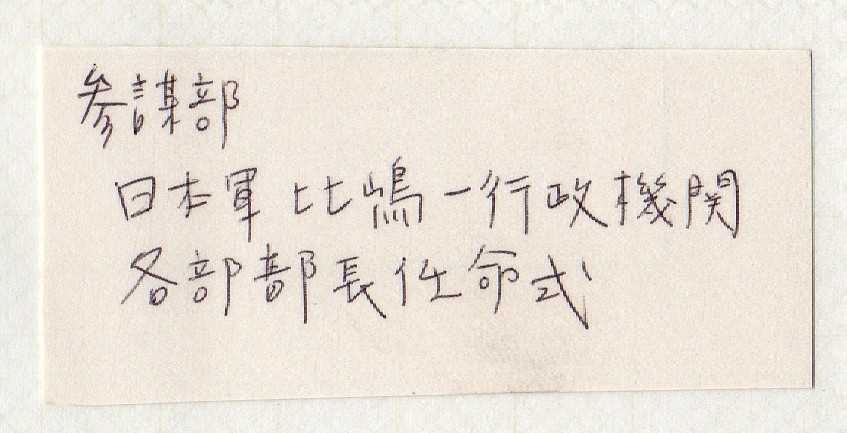 参謀部
日本軍 比嶋一行政機関
各部部長任命式